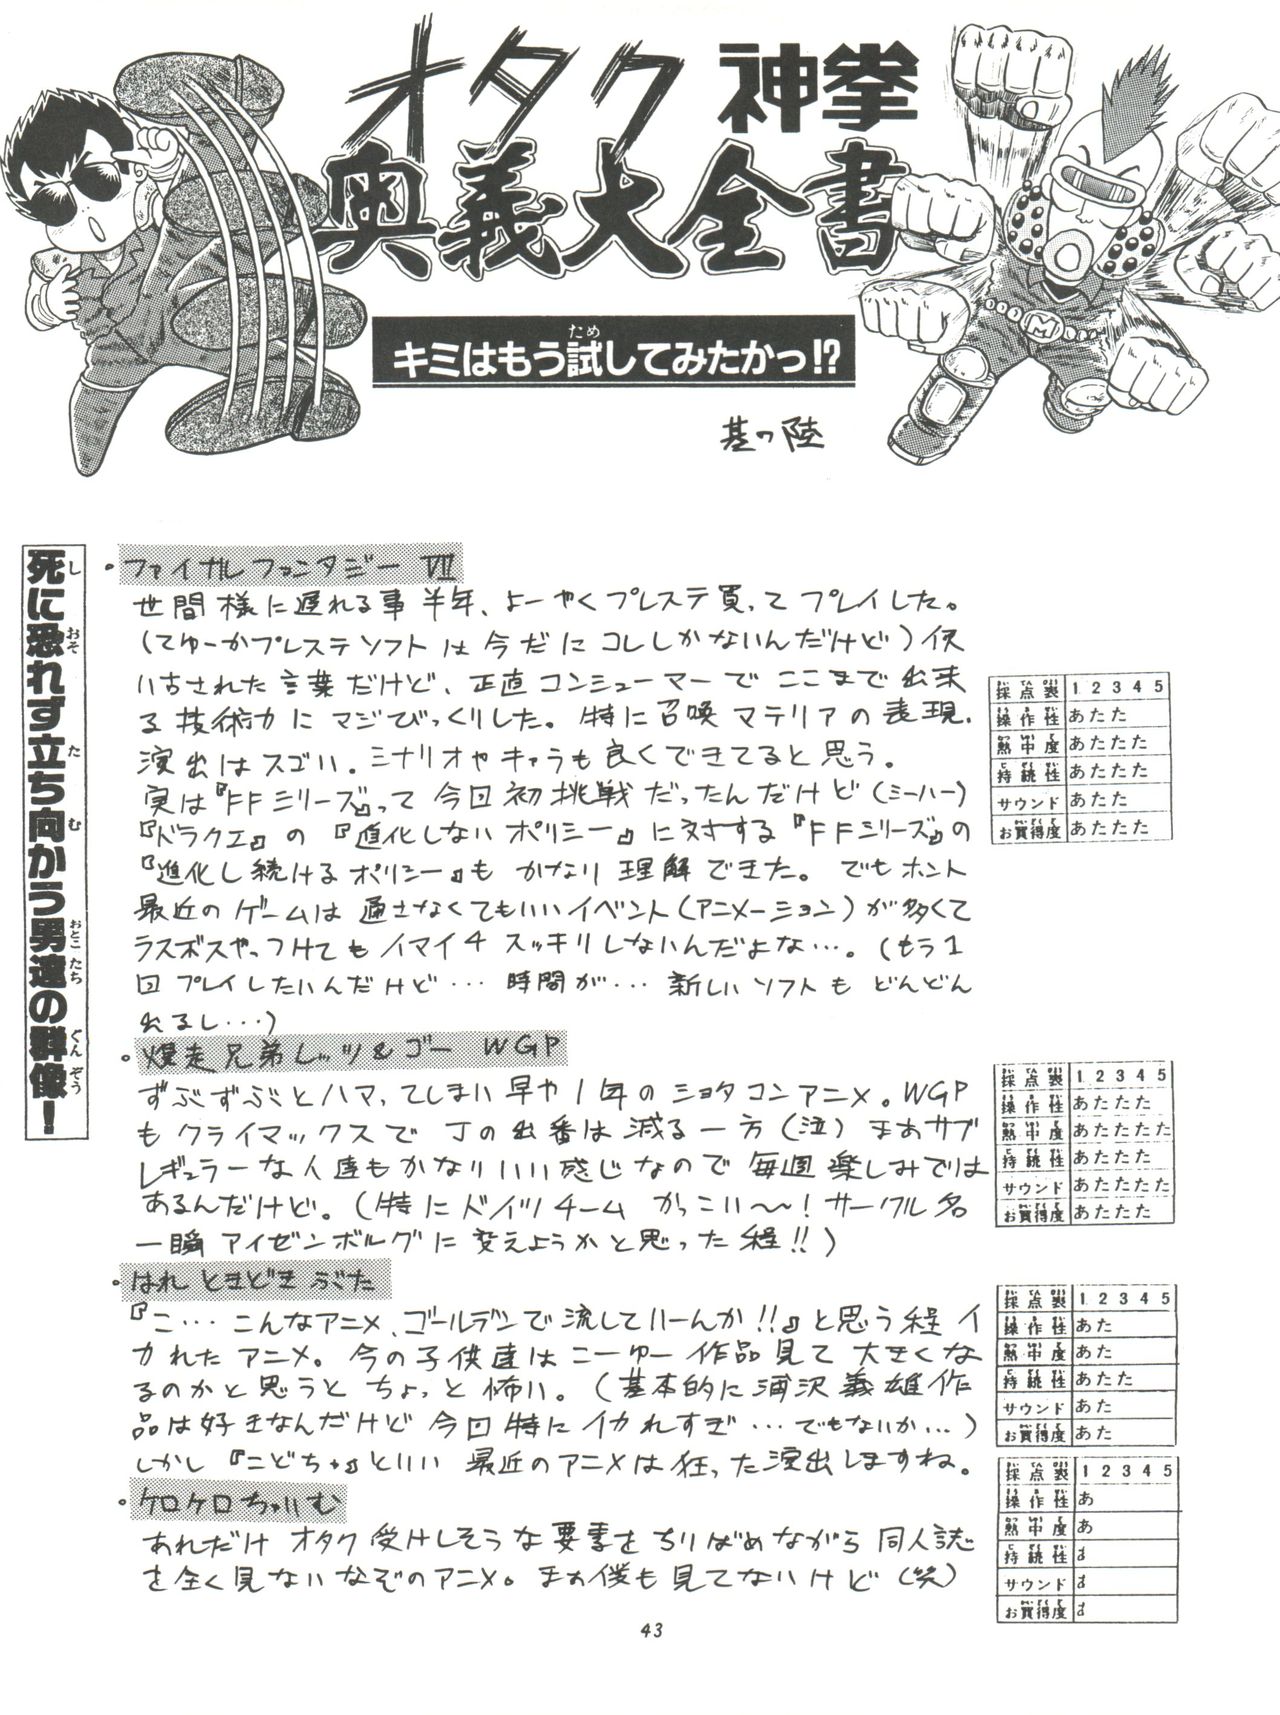 オタク神拳
奥義大全書
キミはもう試してみたかっ!?
ため
其の陸
死に恐れず立ち向かう男達の群像!
し おそ た む おとこ たち ぐん ぞう
・ファイナルファンタジーⅦ
世間様に遅れる事半年、よーやくプレステ買ってプレイした。
(てゆーかプレステソフトは今だにコレしかないんだけど)使
い古された言葉だけど、正直コンシューマーでここまで出来
る技術力にマジびっくりした。特に召喚マテリアの表現、
演出はスゴい。シナリオやキャラも良くできてると思う。
実は『FFシリーズ』って今回初挑戦だったんだけど(ミーハー)
『ドラクエ』の『進化しないポリシー』に対する『FFシリーズ』の
『進化し続けるポリシー』もかなり理解できた。でもホント
最近のゲームは通さなくてもいいイベント(アニメーション)が多くて
ラスボスやっつけてもイマイチスッキリしないんだよな…。(もう1
回プレイしたいんだけど…時間が…新しいソフトもどんどん
出るし…)
採点表 1 2 3 4 5
操作性 あたた
熱中度 あたたた
持続性 あたたた
サウンド あたた
お買得度 あたたた
・爆走兄弟レッツ&ゴー WGP
ずぶずぶとハマってしまい早や1年のショタコンアニメ。WGP
もクライマックスでJの出番は減る一方(泣)まあサブ
レギュラーな人達もかなりいい感じなので毎週楽しみでは
あるんだけど。(特にドイツチームかっこい〜!サークル名
一瞬アイゼンボルグに変えようかと思った程!!)
採点表 1 2 3 4 5
操作性 あたたた
熱中度 あたたたた
持続性 あたたた
サウンド あたたたた
お買得度 あたたた
・はれときどきぶた
『こ…こんなアニメ、ゴールデンで流していーんか!!』と思う程イ
カれたアニメ。今の子供達はこーゆー作品見て大きくな
るのかと思うとちょっと怖い。(基本的に浦沢義雄作
品は好きなんだけど今回特にイカれすぎ…でもないか…)
しかし『こどちゃ』といい最近のアニメは狂った演出しますね。
採点表 1 2 3 4 5
操作性 あた
熱中度 あた
持続性 あたた
サウンド あた
お買得度 あた
・ケロケロちゃいむ
あれだけオタク受けしそうな要素をちりばめながら同人誌
を全く見ないなぞのアニメ。まあ僕も見てないけど(笑)
採点表 1 2 3 4 5
操作性 あ
熱中度 あ
持続性
サウンド
お買得度
43
M